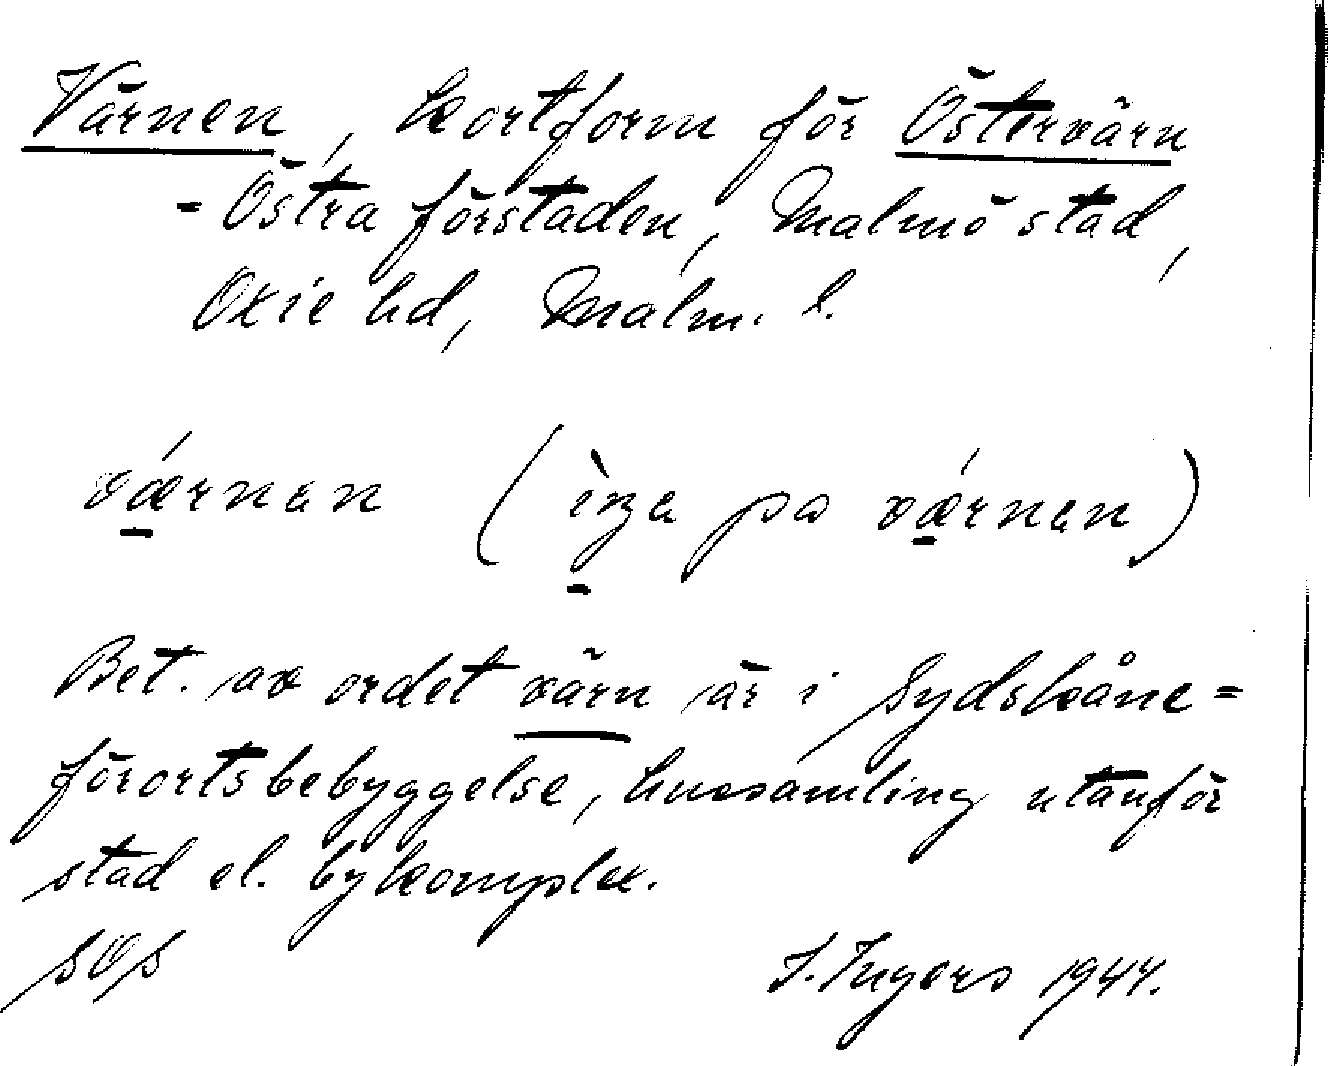 Värnen, kortform för Östervärn
= Östra förstaden, Malmö stad,
Oxie hd, Malm. l.
vǽ̱rnən (ìŋa pa vǽ̱rnən)
Bet. av ordet värn är i Sydskåne =
förortsbebyggelse, hussamling utanför
stad el. bykomplex.
SOS
I. Ingers 1944.